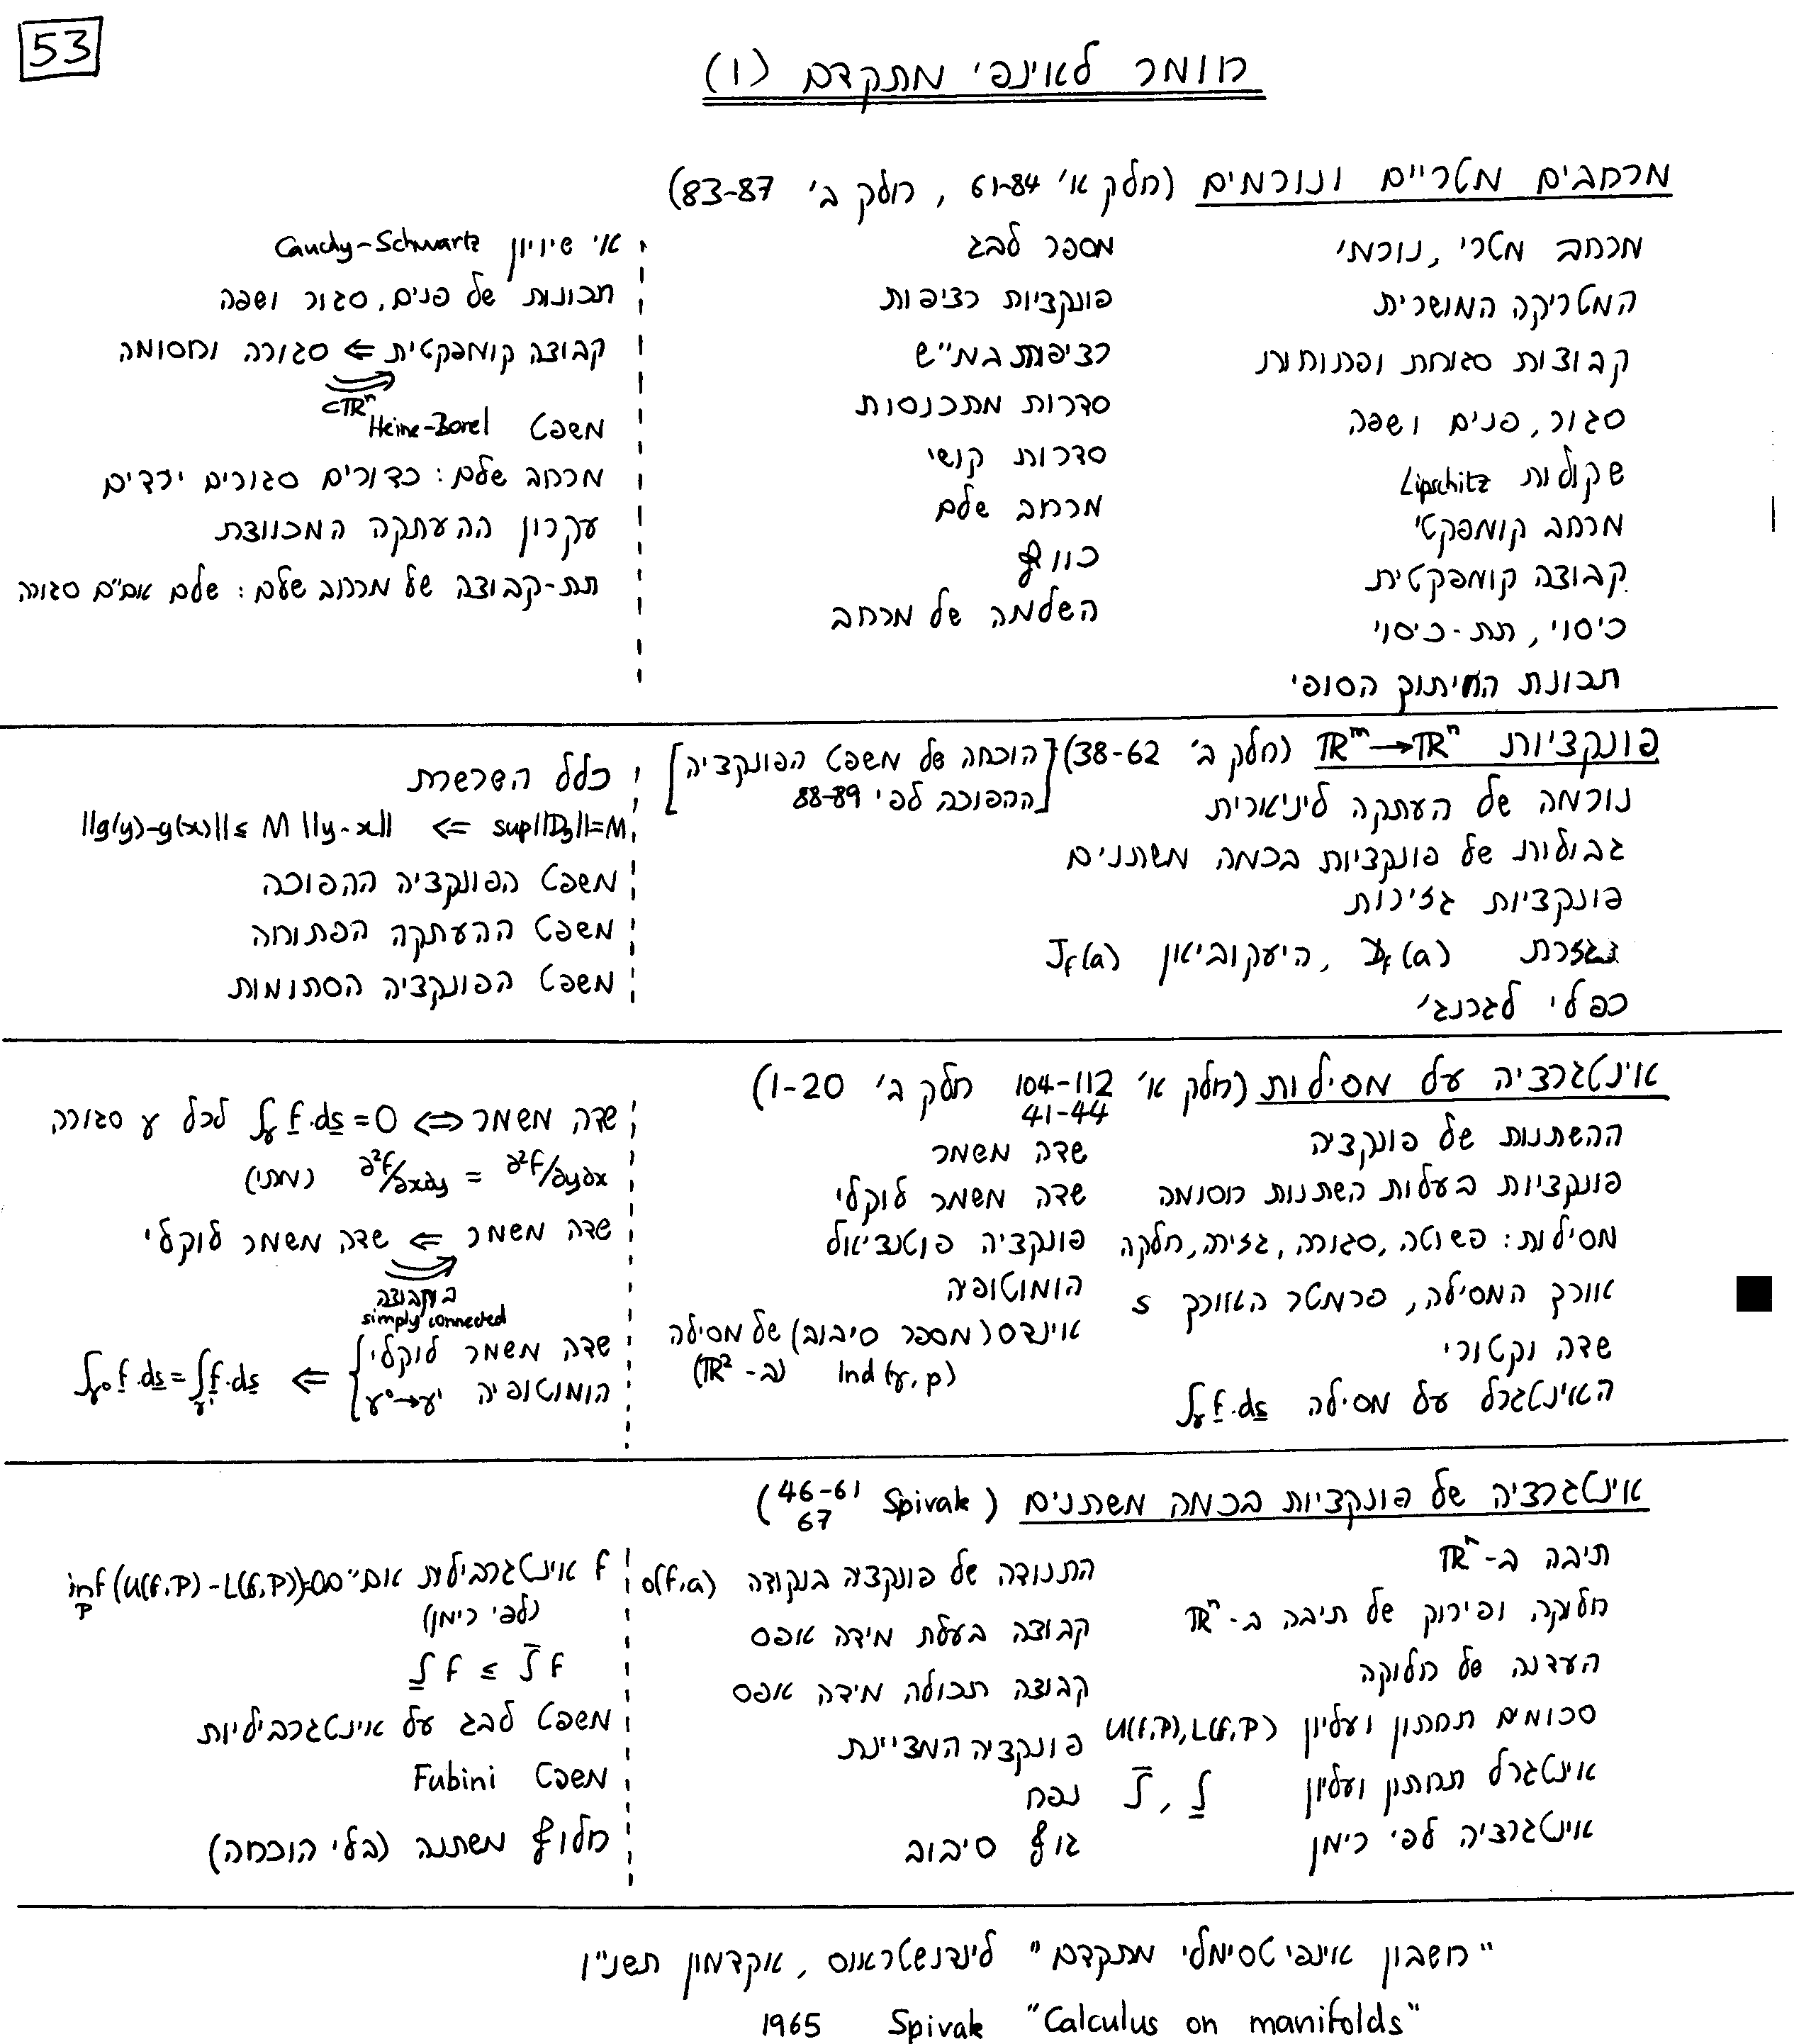 53
חומר לאינפי מתקדם (1)
מרחבים מטריים ונורמים (חלק א' 61-84, חלק ב' 83-87)
מרחב מטרי, נורמי
המטריקה המושרית
קבוצות סגורות ופתוחות
סגור, פנים ושפה
שקילות Lipschitz
מרחב קומפקטי
קבוצה קומפקטית
כיסוי, תת-כיסוי
תכונת החיתוך הסופי
מספר לבג
פונקציות רציפות
רציפות במ"ש
סדרות מתכנסות
סדרות קושי
מרחב שלם
כווץ
השלמה של מרחב
אי שיויון Cauchy-Schwartz
תכונות של פנים, סגור ושפה
קבוצה קומפקטית ⇐ סגורה וחסומה
⊂ℝⁿ
משפט Heine-Borel
מרחב שלם: כדורים סגורים יורדים
עקרון ההעתקה המכווצת
תת-קבוצה של מרחב שלם: שלם אם"ם סגורה
פונקציות ℝᵐ→ℝⁿ (חלק ב' 38-62) [הוכחה של משפט הפונקציה
ההפוכה לפי 88-89]
נורמה של העתקה ליניארית
גבולות של פונקציות בכמה משתנים
פונקציות גזירות
נגזרת D_f(a), היעקוביאן J_f(a)
כפלי לגרנג'
כלל השרשרת
||g(y)-g(x)|| ≤ M||y-x|| ⇐ sup||Dg||=M
משפט הפונקציה ההפוכה
משפט ההעתקה הפתוחה
משפט הפונקציה הסתומות
אינטגרציה על מסילות (חלק א' 104-112 חלק ב' 1-20)
41-44
ההשתנות של פונקציה
פונקציות בעלות השתנות חסומה
מסילות: פשוטה, סגורה, גזירה, חלקה
אורך המסילה, פרמטר האורך s
שדה וקטורי
האינטגרל על מסילה ∫_γ f·ds
שדה משמר
שדה משמר לוקלי
פונקציה פוטנציאל
הומוטופיה
אינדקס (מספר סיבוב) של מסילה
Ind(γ,p) (ב-ℝ²)
שדה משמר ⇔ ∫_γ f·ds=0 לכל γ סגורה
∂²f/∂x∂y = ∂²f/∂y∂x (מתי)
שדה משמר ⇐ שדה משמר לוקלי
בקבוצה
simply connected
שדה משמר לוקלי
הומוטופיה γ⁰→γ¹ ⇐ ∫_γ⁰ f·ds=∫_γ¹ f·ds
אינטגרציה של פונקציות בכמה משתנים (Spivak 46-61
67)
תיבה ב-ℝⁿ
חלוקה ופירוק של תיבה ב-ℝⁿ
העדנה של חלוקה
סכומים תחתון ועליון U(f,P),L(f,P)
אינטגרל תחתון ועליון ∫, ∫
אינטגרציה לפי רימן
התנודה של פונקציה בנקודה o(f,a)
קבוצה בעלת מידה אפס
קבוצה תכולה מידה אפס
פונקציה המציינת
נפח
גוף סיבוב
f אינטגרבילית אם"ם inf_P(U(f,P)-L(f,P))=0
(לפי רימן)
∫f ≤ ∫f
משפט לבג על אינטגרביליות
משפט Fubini
חלוף משתנה (בלי הוכחה)
"חשבון אינפיטסימלי מתקדם" לינדנשטראוס, אקדמון תשנ"ו
"Calculus on manifolds" Spivak 1965